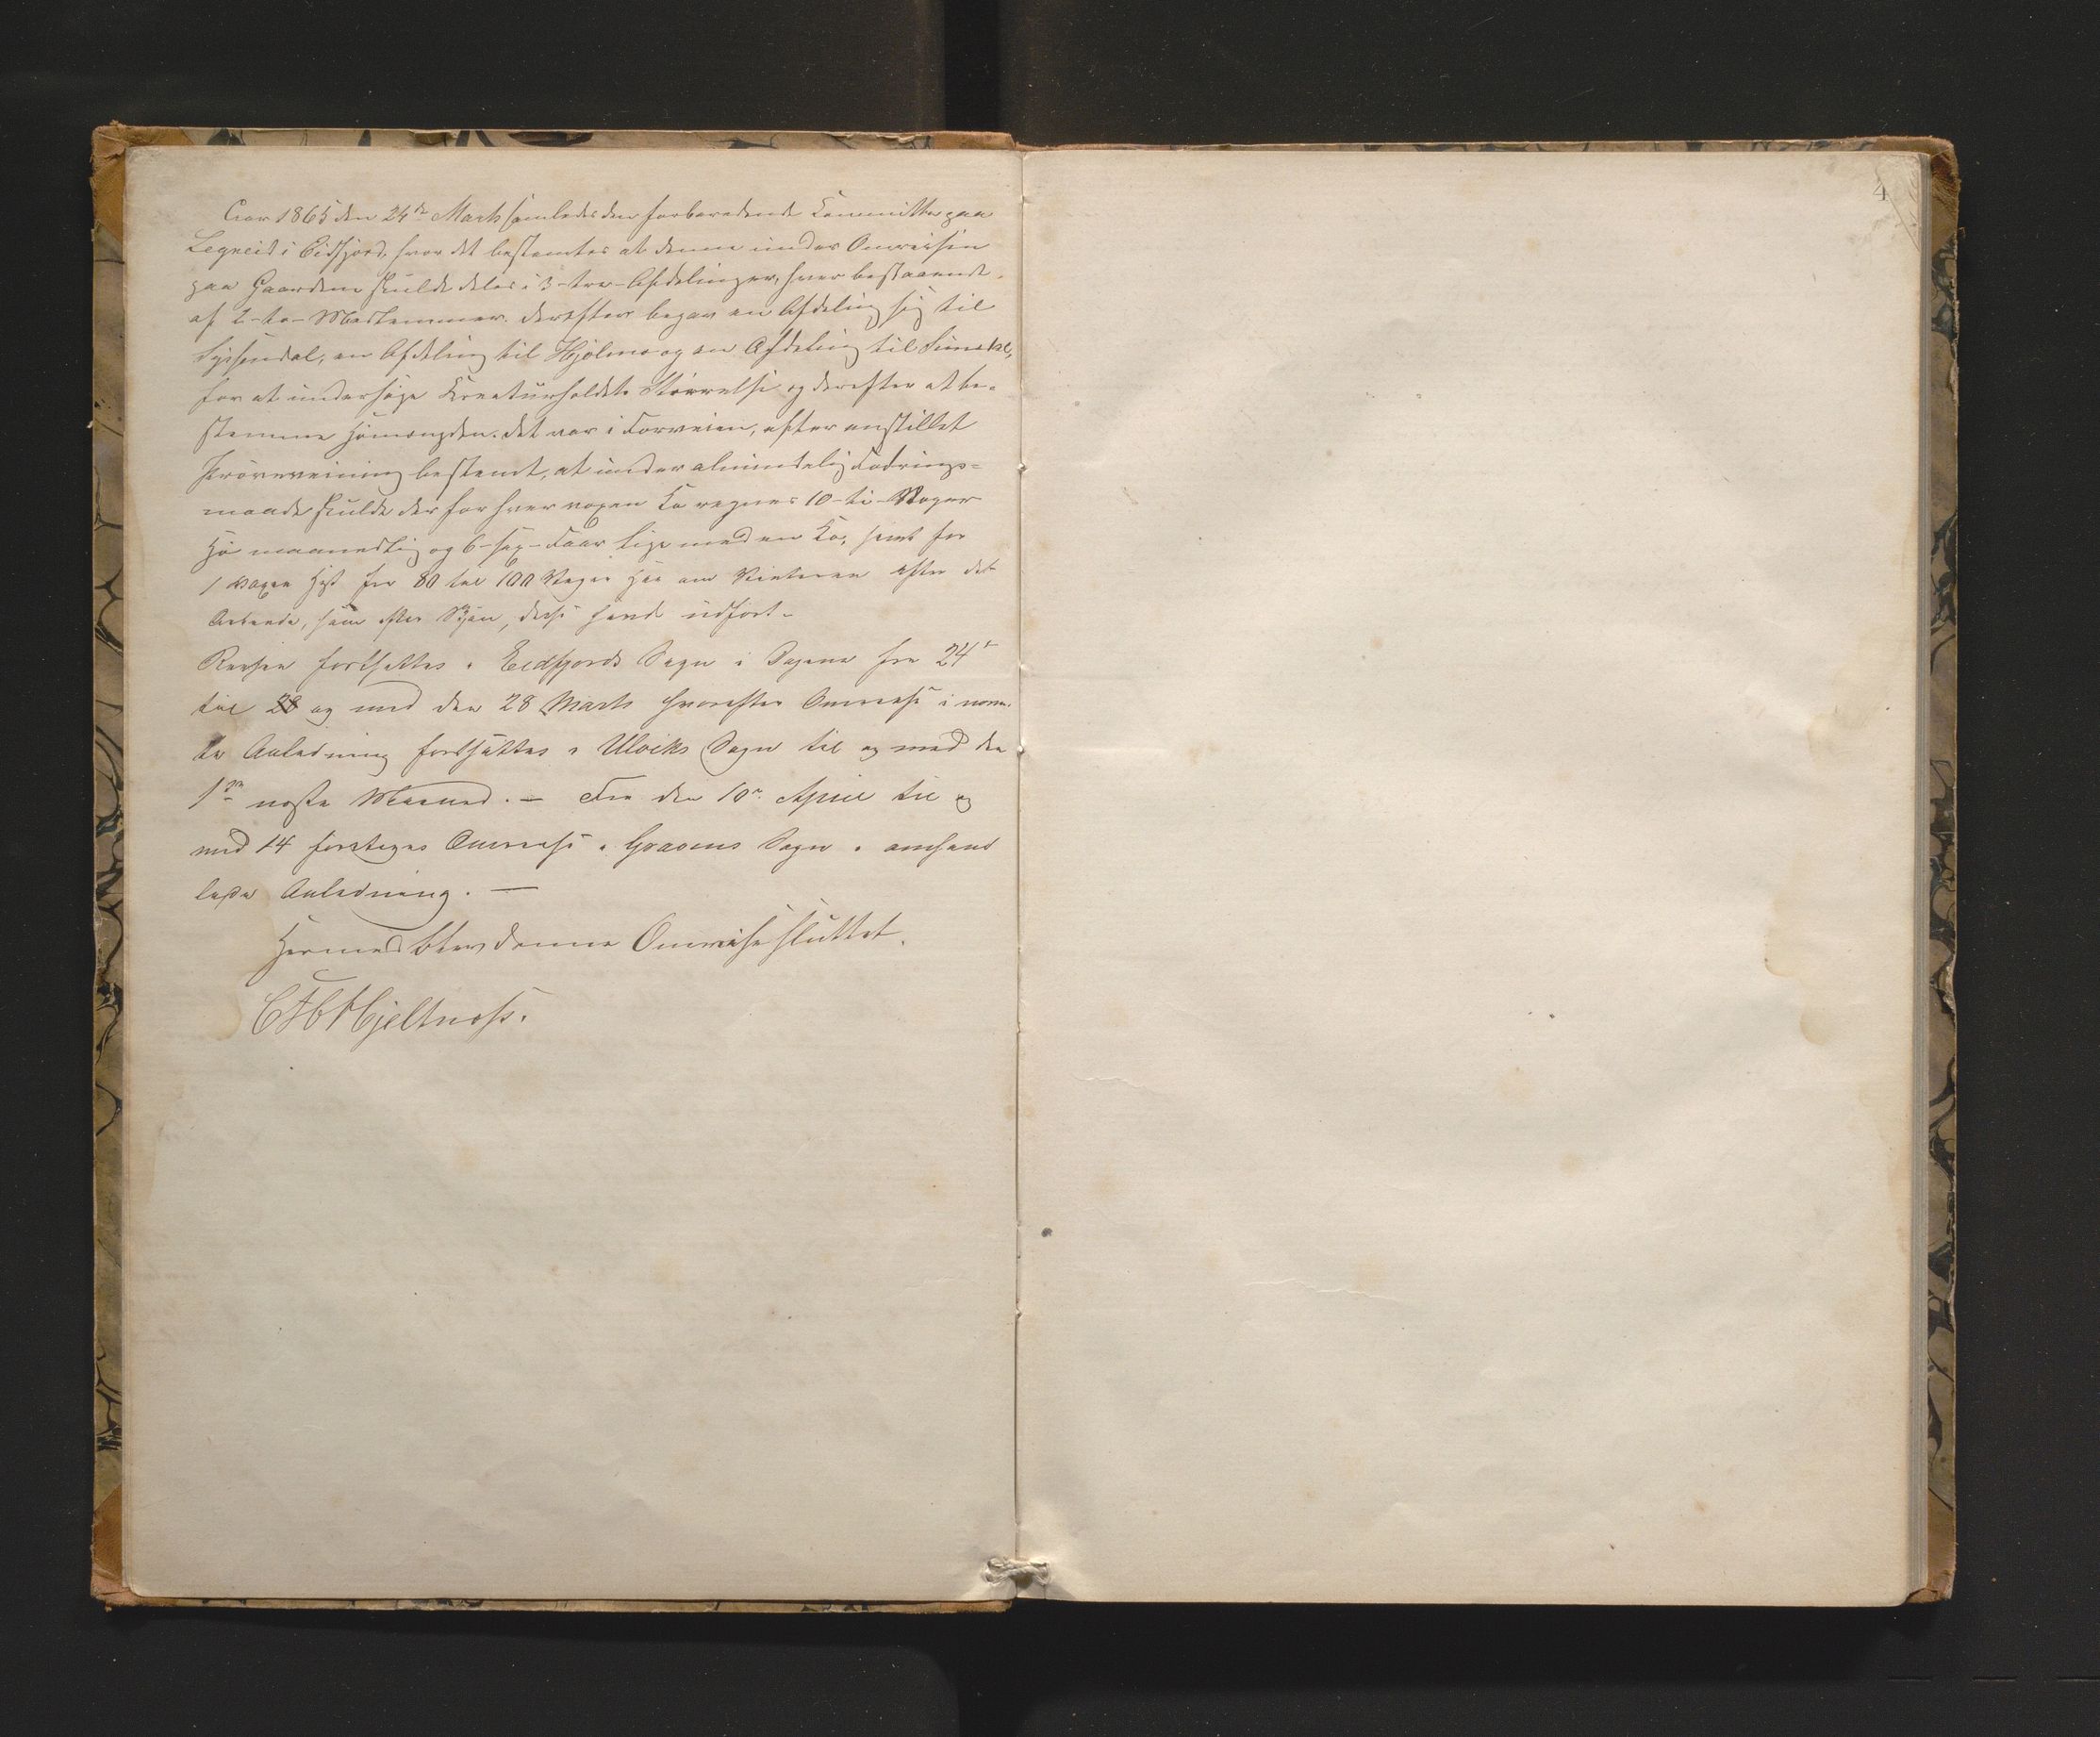 Aar 1865 den 24de Marts samledes den forberedende Committe paa
Legreid i Eidfjord, hvor det bestemtes at denne under Omreisen
paa Gaardene skulde deles i 3-tre-Afdelinger, hver bestaaende
af 2-to-Medlemmer. Derefter begav en Afdeling sig til
Syssendal, en Afdeling til Hjølmo og en Afdeling til Simedal,
for at undersøge Kreaturholdets Størrelse og derefter at be-
stemme Hømængden. Det var i Forveien, efter anstillet
Prøveveining bestemt, at under almindelig Fodrings-
maade skulde der for hver voxen Ko regnes 10-ti-Voger
Hø maanedlig og 6-sex-Faar lige med en Ko, samt for
1 voxen Hest fra 80 til 100 Voger Høe om Vinteren efter det
Arbeide, som efter Skjøn, disse havde udført.
Reisen fortsattes i Eidfjords Sogn i Dagene fra 24de
til 28 og med den 28 Marts hvorefter Omreise i nevn-
te Anledning fortsattes i Ulviks Sogn til og med den
1ste næste Maaned. — Fra den 10de April til og
med 14 foretoges Omreise i Gravens Sogn i omhand
lede Anledning. —
Hermed blev denne Omreise sluttet.
Hjeltnæs.
4